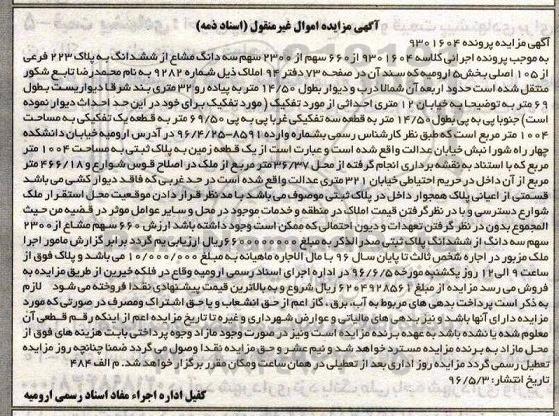 آگهی مزایده اموال غیرمنقول (اسناد ذمه)
آگهی مزایده پرونده ۹۳۰۱۶۰۴
به موجب پرونده اجرائی کلاسه ۹۳۰۱۶۰۴ از ۶۶۰ سهم از ۲۳۰۰ سهم سه دانگ مشاع از ششدانگ به پلاک ۲۲۳ فرعی
از ۱۰۵ اصلی بخش ۵ ارومیه که سند آن در صفحه ۷۳ دفتر ۹۴ املاک ذیل شماره ۹۲۸۲ به نام محمدرضا تابع شکور
منتقل شده است حدود اربعه آن شمالا درب و دیوار بطول ۱۴/۵۰ متر به پیاده رو ۳۲ متری بند شرقا دیواریست بطول
۶۹ متر به توضیحا به خیابان ۱۲ متری احداثی از مورد تفکیک (مورد تفکیک برای خود در این حد احداث دیوار نموده
است) جنوبا پی به پی بطول ۱۴/۵۰ متر به قطعه سه تفکیکی غربا پی به پی ۶۹/۵۰ متر به قطعه یک تفکیکی به مساحت
۱۰۰۴ متر مربع است که طبق نظر کارشناس رسمی بشماره وارده ۸۵۹۱-۹۶/۴/۲۵ در آدرس ارومیه خیابان دانشکده
چهار راه شورا نبش خیابان عدالت واقع شده است و عبارت است از یک قطعه زمین به پلاک ثبتی به مساحت ۱۰۰۴ متر
مربع که با استناد به نقشه برداری انجام گرفته از محل ۳۶/۳۷ متر مربع از ملک در اصلاح قوس شوارع و ۴۶۶/۱۸ متر
مربع از آن داخل در حریم احتیاطی خیابان ۳۲۱ متری عدالت واقع شده است در حد غربی که فاقد دیوار کشی می باشد
قسمتی از اعیانی پلاک همجوار داخل در پلاک ثبتی موصوف می باشد. با مد نظر قرار دادن موقعیت محل استقرار ملک
شوارع دسترسی و با در نظر گرفتن قیمت املاک در منطقه و خدمات موجود در محل و سایر عوامل موثر در قضیه من حیث
المجموع بدون در نظر گرفتن تعهدات و دیون احتمالی که ممکن است وجود داشته باشد ارزش ۶۶۰ سهم مشاع از ۲۳۰۰
سهم سه دانگ از ششدانگ پلاک ثبتی صدر الذکر به مبلغ ریال ارزیابی می گردد برابر گزارش مامور اجرا
ملک مزبور در اجاره شخص ثالث تا پایان سال ۹۶ با مال الاجاره ماهیانه به مبلغ ۱۰/۰۰۰/۰۰۰ می باشد و پلاک فوق از
ساعت ۹ الی ۱۲ روز یکشنبه مورخه ۹۶/۶/۵ در اداره اجرای اسناد رسمی ارومیه وقاع در فلکه خیرین از طریق مزایده به
فروش می رسد مزایده از مبلغ ۶۲۰۴۹۲۸۵۶۱ ریال شروع و به بالاترین قیمت پیشنهادی نقدا فروخته می شود لازم
به ذکر است پرداخت بدهی های مربوط به آب، برق، گاز اعم از حق انشعاب و یا حق اشتراک و مصرف در صورتی که مورد
مزایده دارای آنها باشد و نیز بدهی های مالیاتی و عوارض شهرداری و غیره تا تاریخ مزایده اعم از اینکه رقم قطعی آن
معلوم شده یا نشده باشد به عهده برنده مزایده است ونیز در صورت وجود مازاد وجوه پرداختی بابت هزینه های فوق از
محل مازاد به برنده مزایده مسترد خواهد شد و نیم عشر و حق مزایده نقدا وصول می گردد ضمنا چنانچه روز مزایده
تعطیل رسمی گردد مزایده روز اداری بعد از تعطیلی در همان ساعت ومکان مقرر برگزار خواهد شد. م الف ۴۸۴
تاریخ انتشار: ۹۶/۵/۳
کفیل اداره اجراء مفاد اسناد رسمی ارومیه